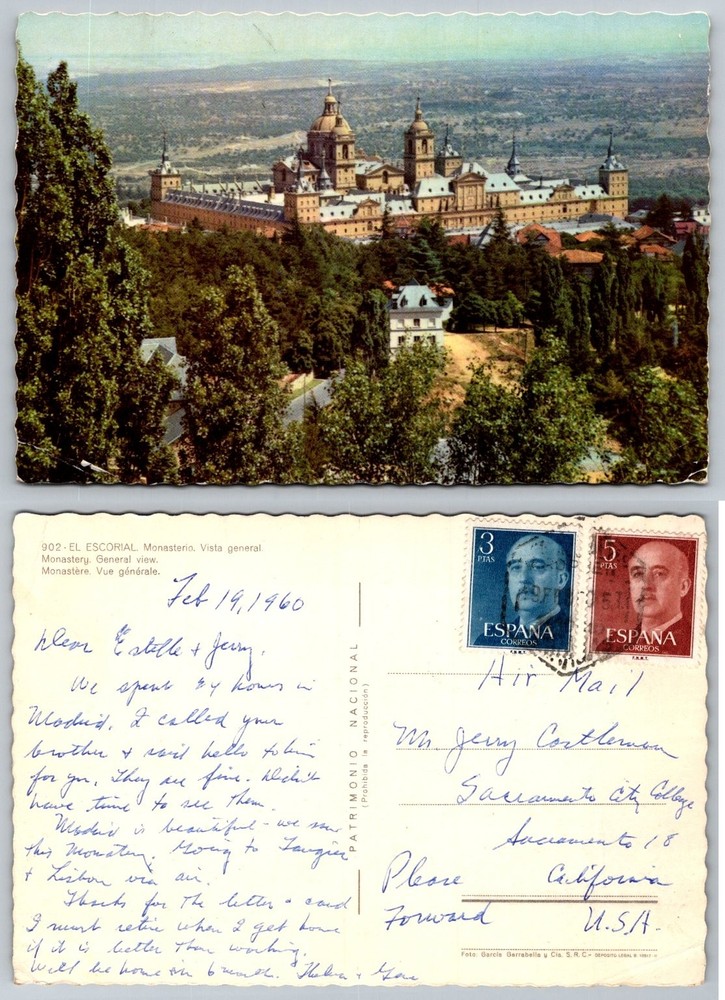 902 - EL ESCORIAL. Monasterio. Vista general.
Monastery. General view.
Monastère. Vue générale.
Feb 19, 1960
Dear Estelle & Jerry.
We spent 24 hours in
Madrid. I called your
brother & said hello to him
for you. They are fine. Didn't
have time to see them.
Madrid is beautiful - we saw
this Monastery. Going to Tangier
& Lisbon via air.
Thanks for the letter & card
I must retire when I get home
if it is better than working.
Will be home in 6 month. Helen &
PATRIMONIO NACIONAL
(Prohibida la reproducción)
3 PTAS
ESPAÑA
CORREOS
5 PTAS
ESPAÑA
CORREOS
Air Mail
Mr. Jerry Castleman
Sacramento City College
Sacramento 18
California
U.S.A.
Please
Forward
Foto: García Garrabella y Cia. S. R. C.- DEPOSITO LEGAL B.